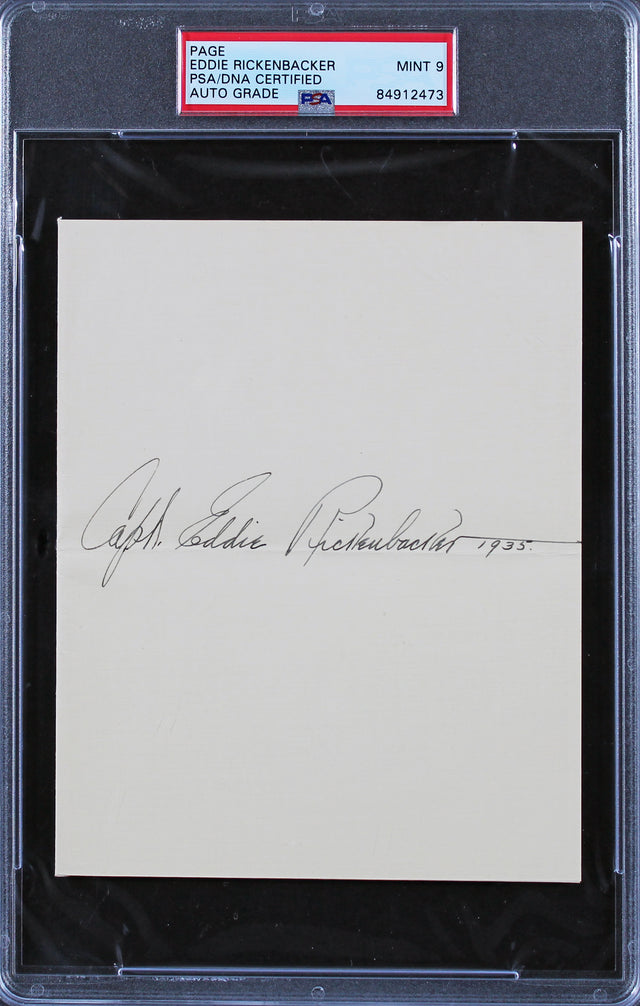 PAGE
EDDIE RICKENBACKER MINT 9
PSA/DNA CERTIFIED
AUTO GRADE PSA 84912473
Capt. Eddie Rickenbacker 1935.